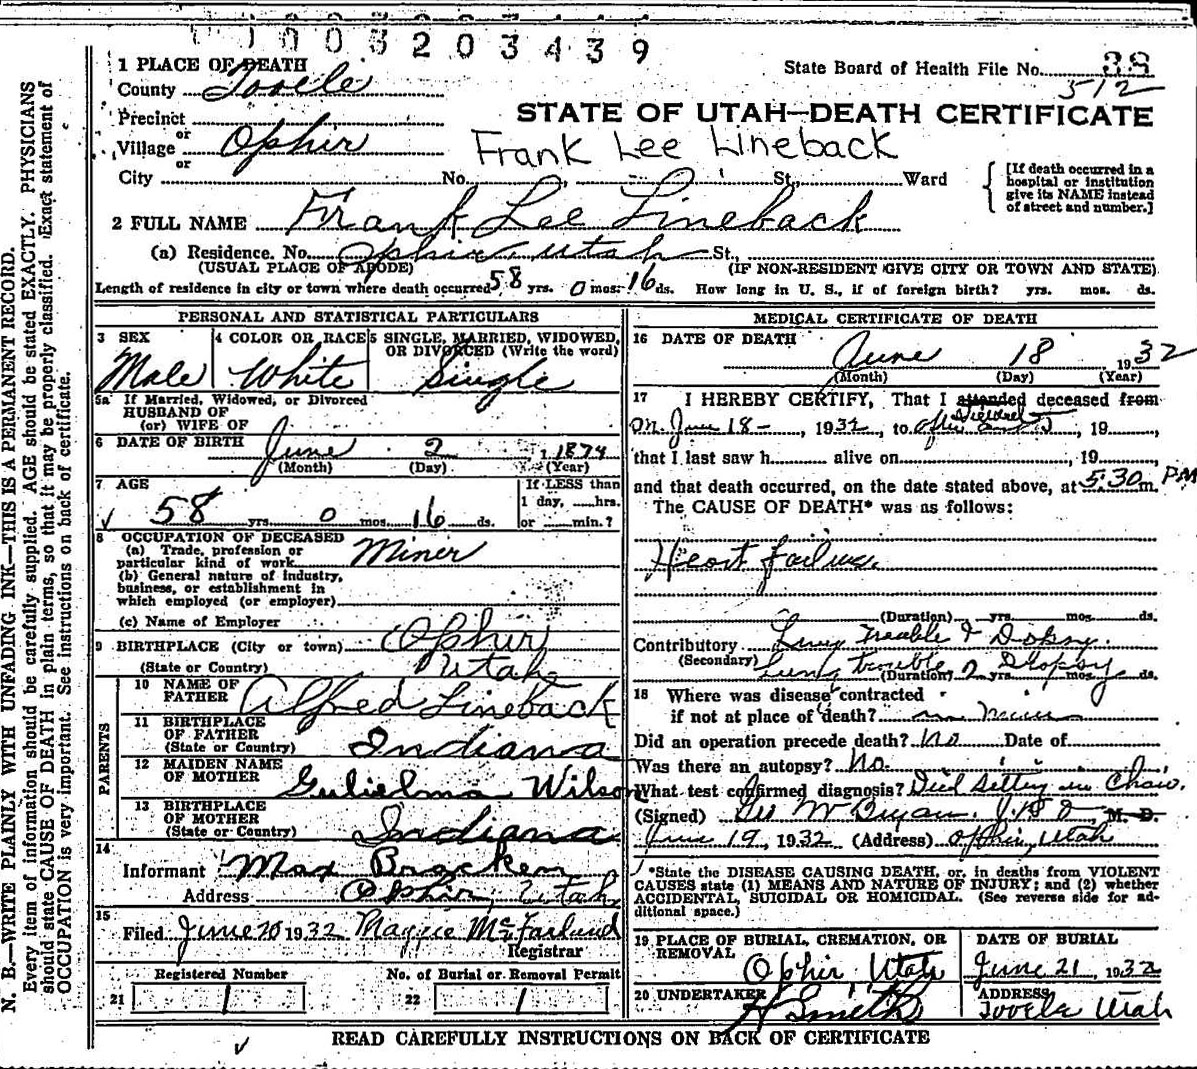 1003203439
1 PLACE OF DEATH
County Tooele
State Board of Health File No. 38
512
Precinct
or
STATE OF UTAH—DEATH CERTIFICATE
Village Ophir
or
Frank Lee Lineback
City No. St., Ward
[If death occurred in a
hospital or institution
give its NAME instead
of street and number.]
2 FULL NAME Frank Lee Lineback
(a) Residence. No. Ophir Utah St.,
(USUAL PLACE OF ABODE) (IF NON-RESIDENT GIVE CITY OR TOWN AND STATE)
Length of residence in city or town where death occurred 58 yrs. 0 mos. 16 ds. How long in U. S., if of foreign birth? yrs. mos. ds.
PERSONAL AND STATISTICAL PARTICULARS
3 SEX
Male
4 COLOR OR RACE
White
5 SINGLE, MARRIED, WIDOWED,
OR DIVORCED (Write the word)
Single
5a If Married, Widowed, or Divorced
HUSBAND OF
(or) WIFE OF
6 DATE OF BIRTH June 2 1874
(Month) (Day) (Year)
7 AGE
58 yrs. 0 mos. 16 ds.
If LESS than
1 day, hrs.
or min.?
8 OCCUPATION OF DECEASED
(a) Trade, profession or
particular kind of work Miner
(b) General nature of industry,
business, or establishment in
which employed (or employer)
(c) Name of Employer
9 BIRTHPLACE (City or town) Ophir
(State or Country) Utah
PARENTS
10 NAME OF
FATHER Alfred Lineback
11 BIRTHPLACE
OF FATHER
(State or Country) Indiana
12 MAIDEN NAME
OF MOTHER Gulielma Wilson
13 BIRTHPLACE
OF MOTHER
(State or Country) Indiana
14
Informant Max Bracken
Address Ophir, Utah
15
Filed June 20 1932 Maggie McFarland
Registrar
Registered Number No. of Burial or Removal Permit
21 1 22 1
MEDICAL CERTIFICATE OF DEATH
16 DATE OF DEATH
June 18 1932
(Month) (Day) (Year)
17 I HEREBY CERTIFY, That I attended deceased from
on June 18 - , 1932, to after , 19 ,
that I last saw h alive on , 19
and that death occurred, on the date stated above, at 5:30 m. PM
The CAUSE OF DEATH* was as follows:
Heart failure.
(Duration) yrs. mos. ds.
Contributory Lung Trouble & Dopsy.
(Secondary) Lung trouble & Dropsy
(Duration) yrs. mos. ds.
18 Where was disease contracted
if not at place of death?
Did an operation precede death? No Date of
Was there an autopsy? No.
What test confirmed diagnosis? Died sitting in Chair.
(Signed) Bryan. M. D.
June 19, 1932 (Address) Ophir, Utah
*State the DISEASE CAUSING DEATH, or, in deaths from VIOLENT
CAUSES state (1) MEANS AND NATURE OF INJURY; and (2) whether
ACCIDENTAL, SUICIDAL OR HOMICIDAL. (See reverse side for ad-
ditional space.)
19 PLACE OF BURIAL, CREMATION, OR
REMOVAL
Ophir, Utah
DATE OF BURIAL
June 21, 1932
20 UNDERTAKER
H Smith
ADDRESS
Tooele Utah
READ CAREFULLY INSTRUCTIONS ON BACK OF CERTIFICATE
N. B.—WRITE PLAINLY WITH UNFADING INK—THIS IS A PERMANENT RECORD.
Every item of information should be carefully supplied. AGE should be stated EXACTLY. PHYSICIANS
should state CAUSE OF DEATH in plain terms, so that it may be properly classified. Exact statement of
OCCUPATION is very important. See instructions on back of certificate.